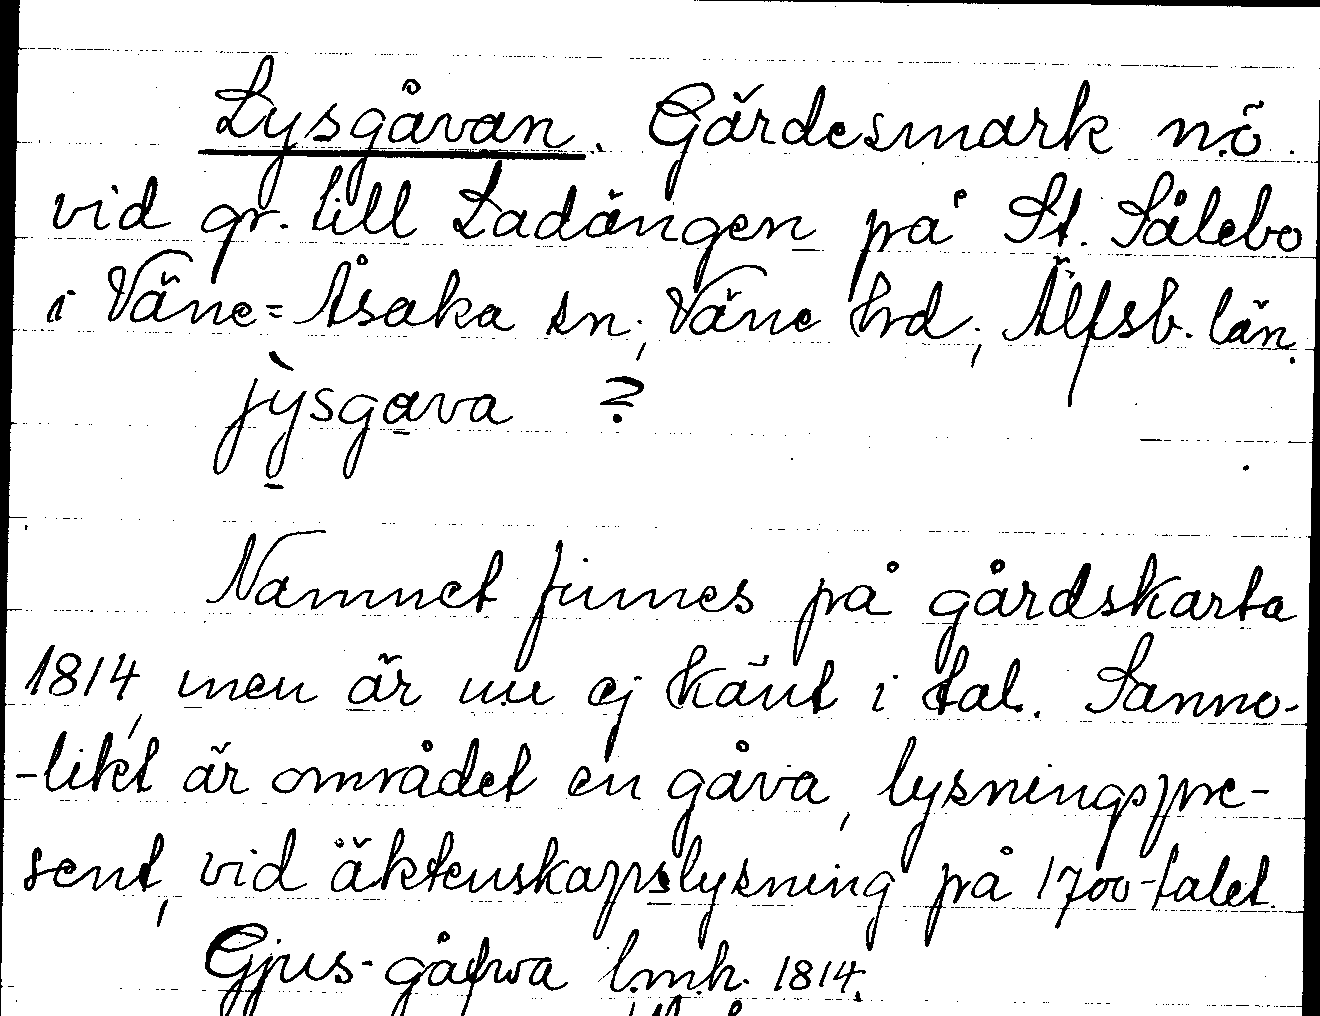 Lysgåvan. Gärdesmark nö.
vid gr. till Ladängen på St. Sålebo
i Väne-Åsaka sn, Väne hrd, Älfsb. län.
jỳsgava ?
Namnet finnes på gårdskarta
1814, men är nu ej känt i tal. Sanno-
-likt är området en gåva, lysningspre-
sent, vid äktenskapslysning på 1700-talet.
Gjus-gåfwa l.m.h. 1814.